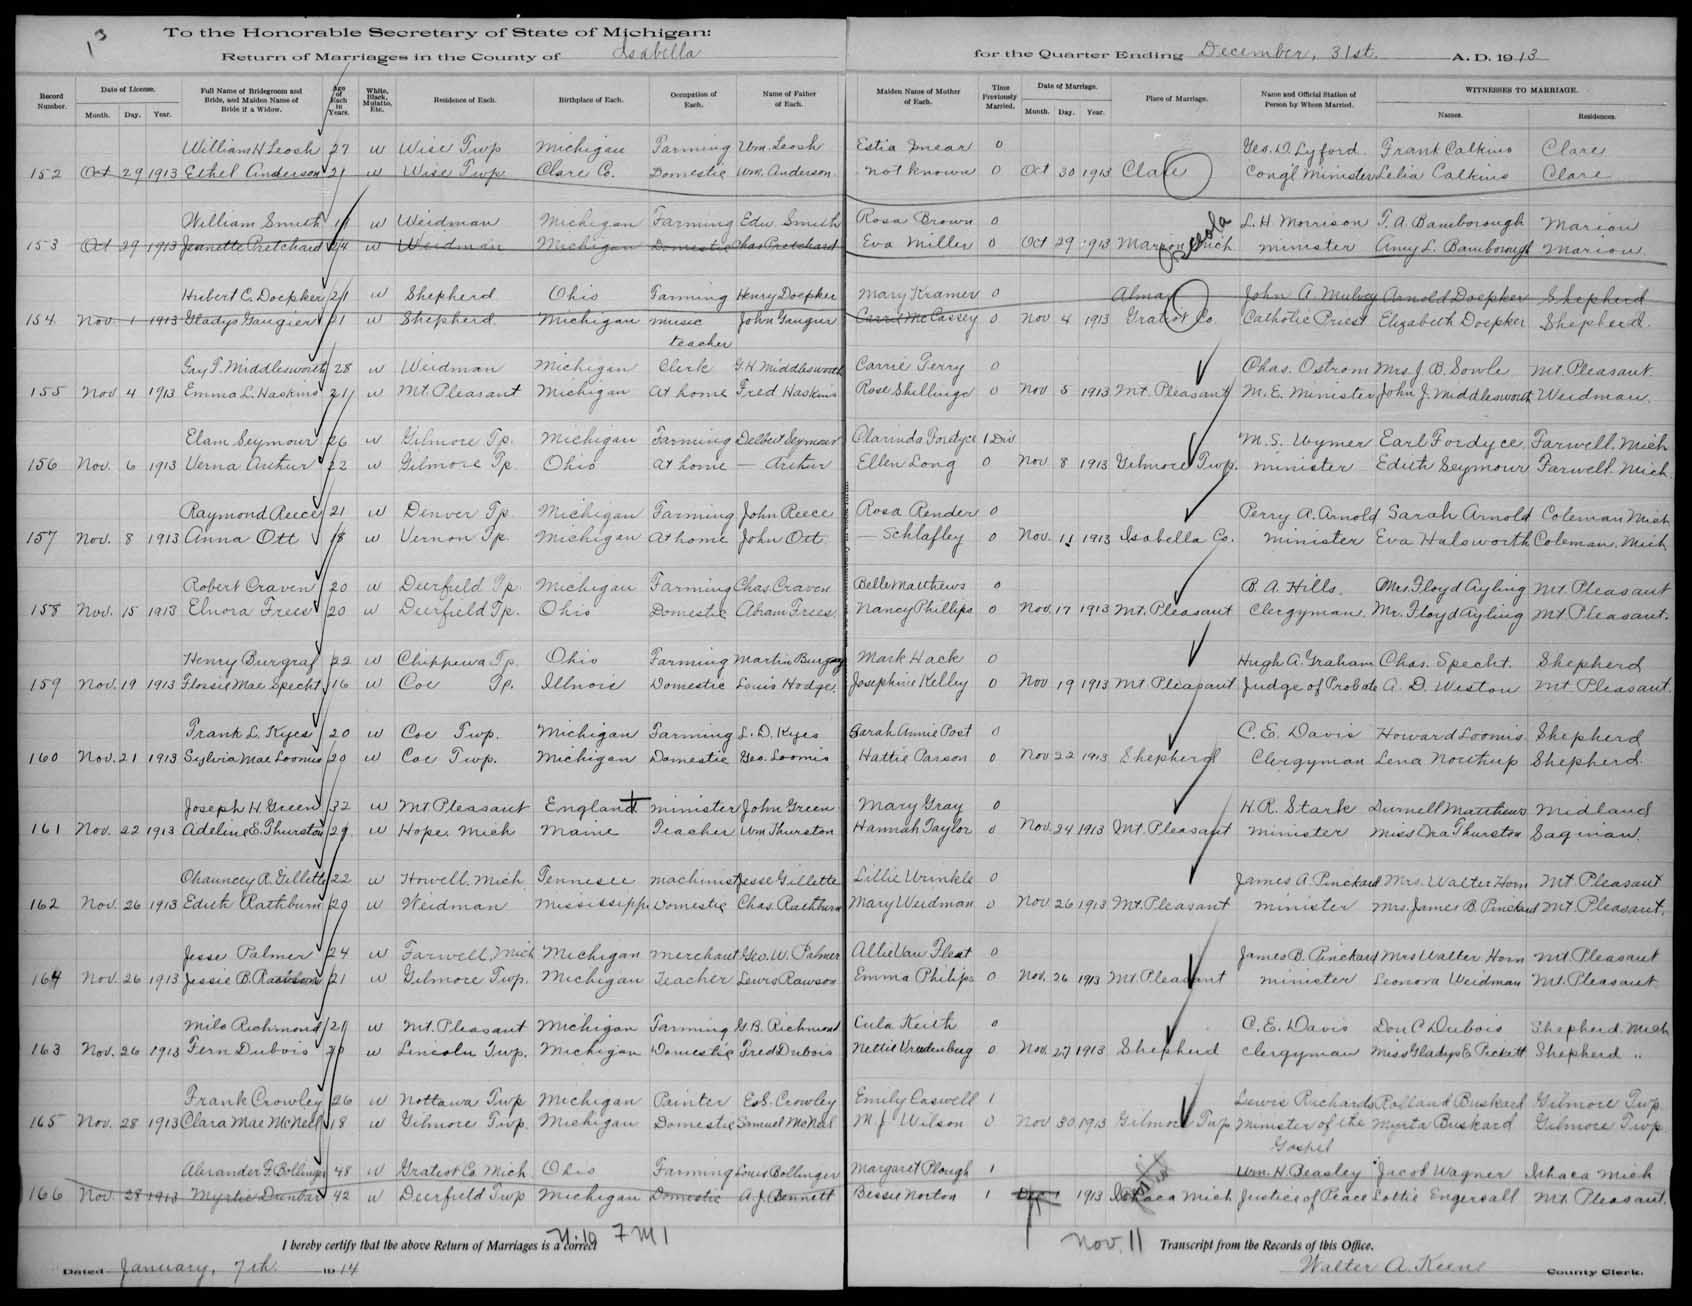 13
To the Honorable Secretary of State of Michigan:
Return of Marriages in the County of Isabella for the Quarter Ending December, 31st. A. D. 1913
Record Number. Date of License. Month. Day. Year. Full Name of Bridegroom and Bride, and Maiden Name of Bride if a Widow. Age of Each in Years. White, Black, Mulatto, Etc. Residence of Each. Birthplace of Each. Occupation of Each. Name of Father of Each. Maiden Name of Mother of Each. Times Previously Married. Date of Marriage. Month. Day. Year. Place of Marriage. Name and Official Station of Person by Whom Married. WITNESSES TO MARRIAGE. Names. Residences.
William H Leosh 27 w Wise Twp Michigan Farming Wm. Leosh Estia Smear 0 Geo. D. Lyford Frank Calkins Clare
152 Oct 29 1913 Ethel Anderson 21 w Wise Twp Clare Co. Domestic Wm. Anderson not known 0 Oct 30 1913 Clare Cong'l Minister Lelia Calkins Clare
William Smith w Weidman Michigan Farming Edw Smith Rosa Brown 0 Osceola L. H Morrison T. A Bamborough Marion
153 Oct 29 1913 Jeanette Pretchard w Weidman Michigan Domestic Chas Pretchard Eva Miller 0 Oct 29 1913 Marion Mich minister Amy L. Bamborough Marion
Hubert C. Doepker 21 w Shepherd Ohio Farming Henry Doepker Mary Kramer 0 Alma John A. Mulvey Arnold Doepker Shepherd
154 Nov. 1 1913 Gladys Gaugier 21 w Shepherd Michigan music John Gaugier Carrie McCassey 0 Nov 4 1913 Gratiot Co Catholic Priest Elizabeth Doepker Shepherd.
teacher
Gay T. Middlesworth 28 w Weidman Michigan Clerk G. H Middlesworth Carrie Terry 0 Chas. Ostrom Mrs J. B. Sowle Mt. Pleasant
155 Nov 4 1913 Emma L. Haskins 21 w Mt. Pleasant Michigan At home Fred Haskins Rose Shellinge 0 Nov 5 1913 Mt. Pleasant M. E. Minister John J. Middlesworth Weidman.
Elam Seymour 26 w Gilmore Tp. Michigan Farming Delbert Seymour Clarinda Fordyce 1 Div M. S. Wymer Earl Fordyce Farwell, Mich
156 Nov. 6 1913 Verna Arthur 22 w Gilmore Tp Ohio At home — Arthur Ellen Long 0 Nov 8 1913 Gilmore Twp. minister Edith Seymour Farwell. Mich
Raymond Reece 21 w Denver Tp Michigan Farming John Reece Rosa Render 0 Perry A. Arnold Sarah Arnold Coleman Mich
157 Nov. 8 1913 Anna Ott 18 w Vernon Tp. Michigan At home John Ott — Schlafley 0 Nov. 11 1913 Isabella Co. minister Eva Halsworth Coleman. Mich
Robert Craven 20 w Deerfield Tp Michigan Farming Chas. Craven Belle Matthews 0 B. A. Hills. Mrs Floyd Ayling Mt Pleasant
158 Nov. 15 1913 Elnora Frees 20 w Deerfield Tp. Ohio Domestic Abram Frees. Nancy Phillips 0 Nov. 17 1913 Mt. Pleasant Clergyman. Mr. Floyd Ayling Mt Pleasant.
Henry Burgraf 22 w Chippewa Tp. Ohio Farming Martin Burgraf Mark Hack 0 Hugh A. Graham Chas. Specht. Shepherd
159 Nov. 19 1913 Flossie Mae Specht 16 w Coe Tp. Illnois Domestic Louis Hodge. Josephine Kelley 0 Nov 19 1913 Mt Pleasant Judge of Probate A. D. Weston Mt Pleasant.
Frank L. Kyes 20 w Coe Twp. Michigan Farming L. D. Kyes Sarah Annie Post 0 C. E. Davis Howard Loomis Shepherd
160 Nov. 21 1913 Sylvia Mae Loomis 20 w Coe Twp. Michigan Domestic Geo. Loomis Hattie Parson 0 Nov 22 1913 Shepherd Clergyman Lena Northup Shepherd.
Joseph H Green 32 w Mt Pleasant England minister John Green Mary Gray 0 H. R. Stark Durnell Matthews Midland
161 Nov. 22 1913 Adeline E. Thurston 29 w Hope. Mich Maine Teacher Wm Thurston Hannah Taylor 0 Nov. 24 1913 Mt. Pleasant minister Miss Ora Thurston Saginaw.
Chauncey R. Gillette 22 w Howell. Mich Tennesee machinist Jesse Gillette Lillie Wrinkle 0 James A Pinckard Mrs. Walter Horn Mt Pleasant
162 Nov. 26 1913 Edith Rathburn 29 w Weidman Mississippi Domestic Chas. Rathburn Mary Weidman 0 Nov. 26 1913 Mt. Pleasant minister Mrs. James B. Pinckard Mt. Pleasant.
Jesse Palmer 24 w Farwell, Mich Michigan merchant Geo. W. Palmer Allie Van Fleat 0 James B. Pinckard Mrs Walter Horn Mt. Pleasant
164 Nov. 26 1913 Jessie B. Rawson 21 w Gilmore Twp. Michigan Teacher Lewis Rawson Emma Philips 0 Nov. 26 1913 Mt Pleasant minister Leonora Weidman Mt. Pleasant
Milo Richmond 21 w Mt. Pleasant Michigan Farming G. B. Richmond Lula Keith 0 C. E. Davis Don C Dubois Shepherd. Mich
163 Nov. 26 1913 Fern Dubois w Lincoln Twp. Michigan Domestic Fred Dubois Nettie Vredenburg 0 Nov. 27 1913 Shepherd clergyman Miss Gladys E Pickett Shepherd "
Frank Crowley 26 w Nottawa Twp Michigan Painter E. S. Crowley Emily Caswell 1 Lewis Richards Rolland Buskard Gilmore Twp.
165 Nov. 28 1913 Clara Mae McNeil 18 w Gilmore Twp. Michigan Domestic Samuel McNeil M. J Wilson 0 Nov 30 1913 Gilmore Twp Minister of the Myrta Buskard Gilmore Twp
Gospel
Alexander F Bollinger 48 w Gratiot Co Mich Ohio Farming Louis Bollinger Margaret Plough 1 Wm. H. Beasley Jacob Wagner Ithaca Mich
166 Nov. 28 1913 Myrtie Dunbar 42 w Deerfield Twp Michigan Domestic A. J. Bennett Bessie Norton 1 1913 Ithaca Mich Justice of Peace Lottie Engersall Mt. Pleasant.
7 M 1 Nov. 11
I hereby certify that the above Return of Marriages is a correct Transcript from the Records of this Office.
Dated January, 7th. 1914 Walter A. Keen County Clerk.